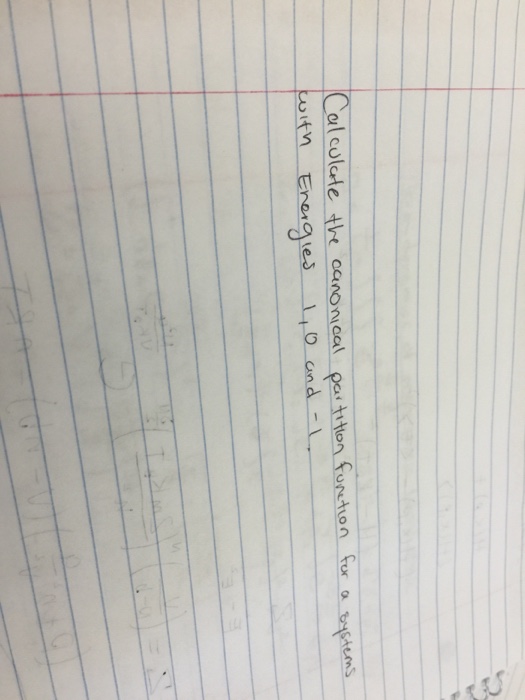 Calculate the canonical partition function for a systems
with Energies 1, 0 and -1.